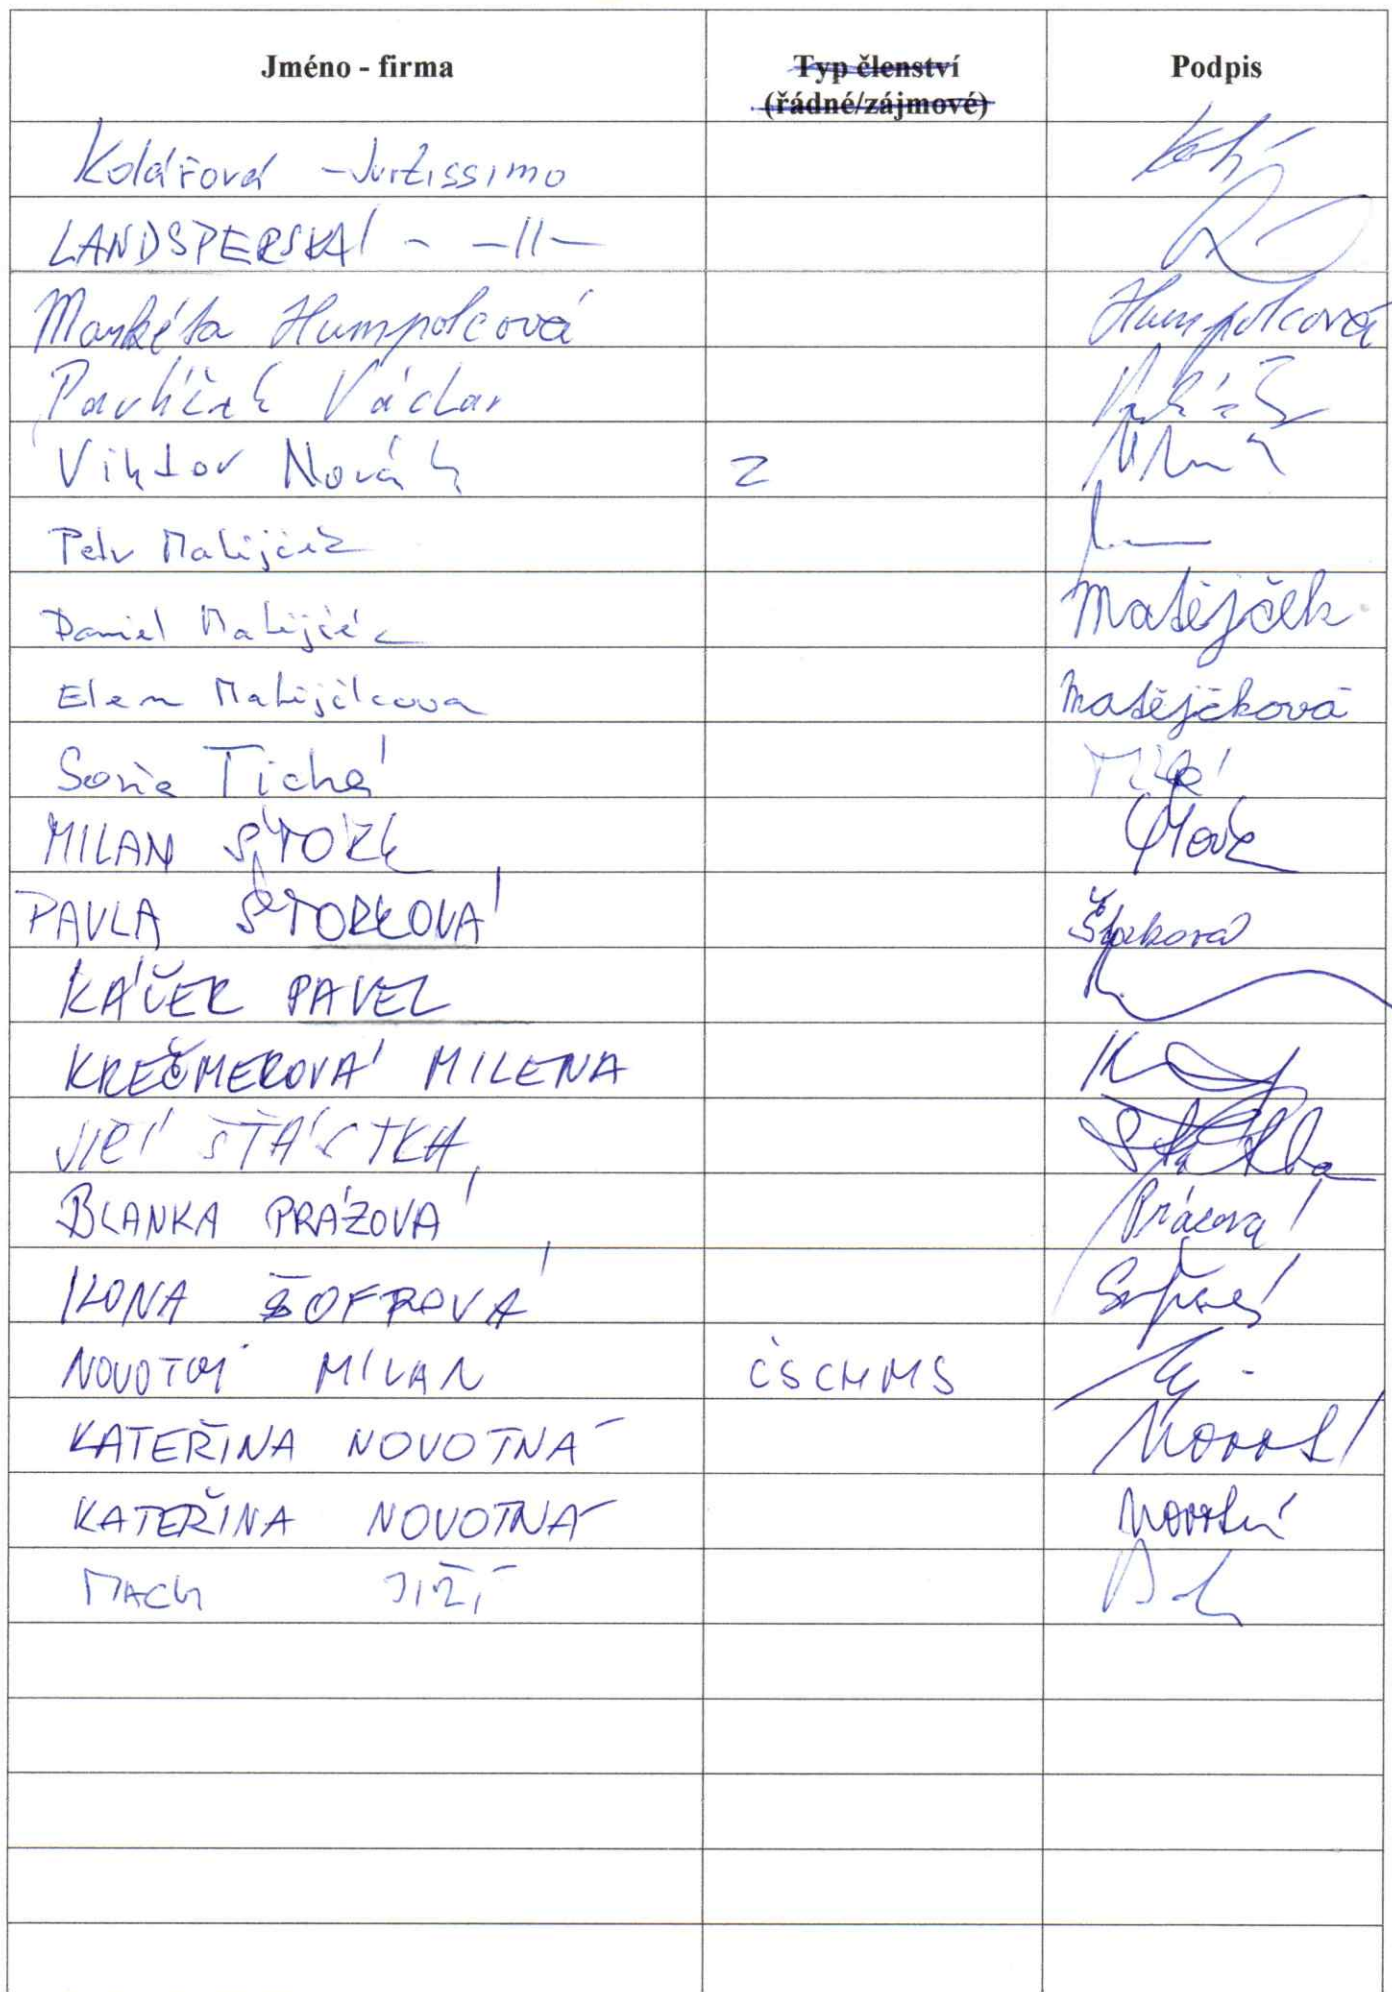 Jméno - firma Typ členství Podpis
(řádné/zájmové)
Kolářová
LANDSPERSKÁ - -11-
Markéta Humpolcová Humpolcová
Pavlíček Václav
Viktor Novák Z
Petr Matějček
Daniel Matějček Matějček
Elen Matějčkova Matějčková
Soňa Tichá
MILAN ŠTORK
PAVLA ŠTORKOVÁ Štorková
KÁČER PAVEL
KREČMEROVÁ MILENA
JIŘÍ ŠŤÁSTKA
BLANKA PRÁZOVÁ
ILONA ŠOFROVÁ
NOVOTNÝ MILAN ČSCHMS
KATEŘINA NOVOTNÁ
KATEŘINA NOVOTNÁ Novotná
MACH JIŘÍ